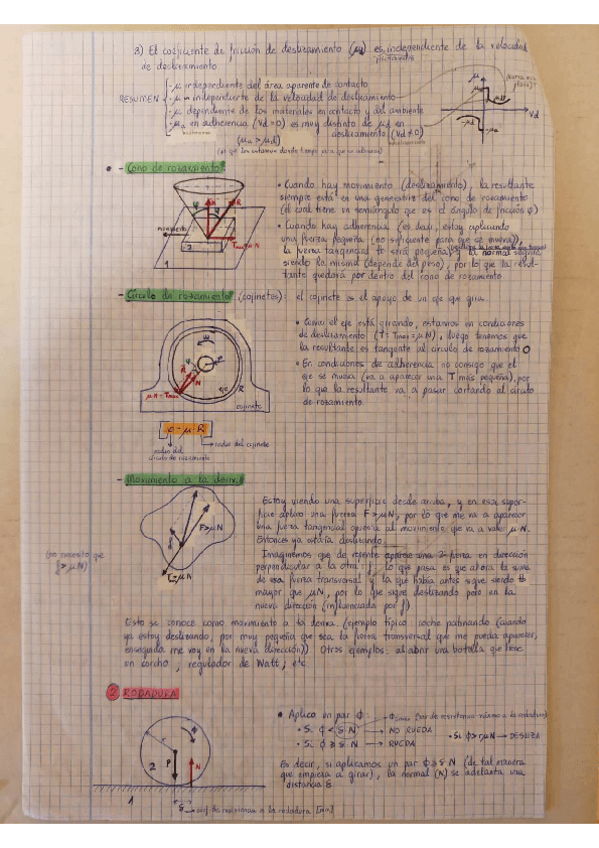 3) El coeficiente de fricción de deslizamiento (μd) es independiente de la velocidad
de deslizamiento.
RESUMEN
- μ independiente del área aparente de contacto
- μ independiente de la velocidad de deslizamiento
- μ dependiente de los materiales en contacto y del ambiente
- μa en adherencia (Vd = 0) es muy distinto de μd en
deslizamiento (Vd ≠ 0)
(μa > μd)
μ
Vd
- Cono de rozamiento:
N
R
φ
movimiento
2
1
• Cuando hay movimiento (deslizamiento), la resultante
siempre está en una generatriz del cono de rozamiento
(el cual tiene un semiángulo que es el ángulo de fricción φ)
• Cuando hay adherencia (es decir, estoy aplicando
una fuerza pequeña (no suficiente para que se mueva)),
la fuerza tangencial T será pequeña y la normal seguirá
siendo la misma (depende del peso), por lo que la resul-
tante quedará por dentro del cono de rozamiento.
- Círculo de rozamiento (cojinetes): el cojinete es el apoyo de un eje que gira.
ω
R
N
μN = Tmax
eje
cojinete
• Como el eje está girando, estamos en condiciones
de deslizamiento (T = Tmax = μN), luego tenemos que
la resultante es tangente al círculo de rozamiento
• En condiciones de adherencia no consigo que el
eje se mueva (va a aparecer una T más pequeña), por
lo que la resultante va a pasar cortando al círculo
de rozamiento.
ρ = μ·R
radio del cojinete
radio del
círculo de rozamiento
- Movimiento a la deriva:
F>μN
T=μN
(no necesito que
f > μN)
Estoy viendo una superficie desde arriba, y en esa super-
ficie aplico una fuerza F>μN, por lo que me va a aparecer
una fuerza tangencial opuesta al movimiento que va a valer μ·N.
Entonces ya estaría deslizando.
Imaginemos que de repente aparece una 2ª fuerza en dirección
perpendicular a la otra: f; lo que pasa es que ahora la suma
de esa fuerza transversal y la que había antes sigue siendo
mayor que μN, por lo que sigue deslizando pero en la
nueva dirección (influenciada por f)
Esto se conoce como movimiento a la deriva. (ejemplo típico: coche patinando (cuando
ya estoy deslizando, por muy pequeña que sea la fuerza transversal que me pueda aparecer,
enseguida me voy en la nueva dirección)) Otros ejemplos: al abrir una botella que tiene
un corcho, regulador de Watt, etc.
2 RODADURA
r
φ
2
P
N
1
δ
coef. de resistencia a la rodadura [mm]
• Aplico un par φ:
(par de resistencia máximo a la rodadura)
• Si φ < δ·N → NO RUEDA
• Si φ ≥ δ·N → RUEDA
• Si φ > rμN → DESLIZA
Es decir, si aplicamos un par φ ≥ δ·N (de tal manera
que empieza a girar), la normal (N) se adelanta una
distancia δ.